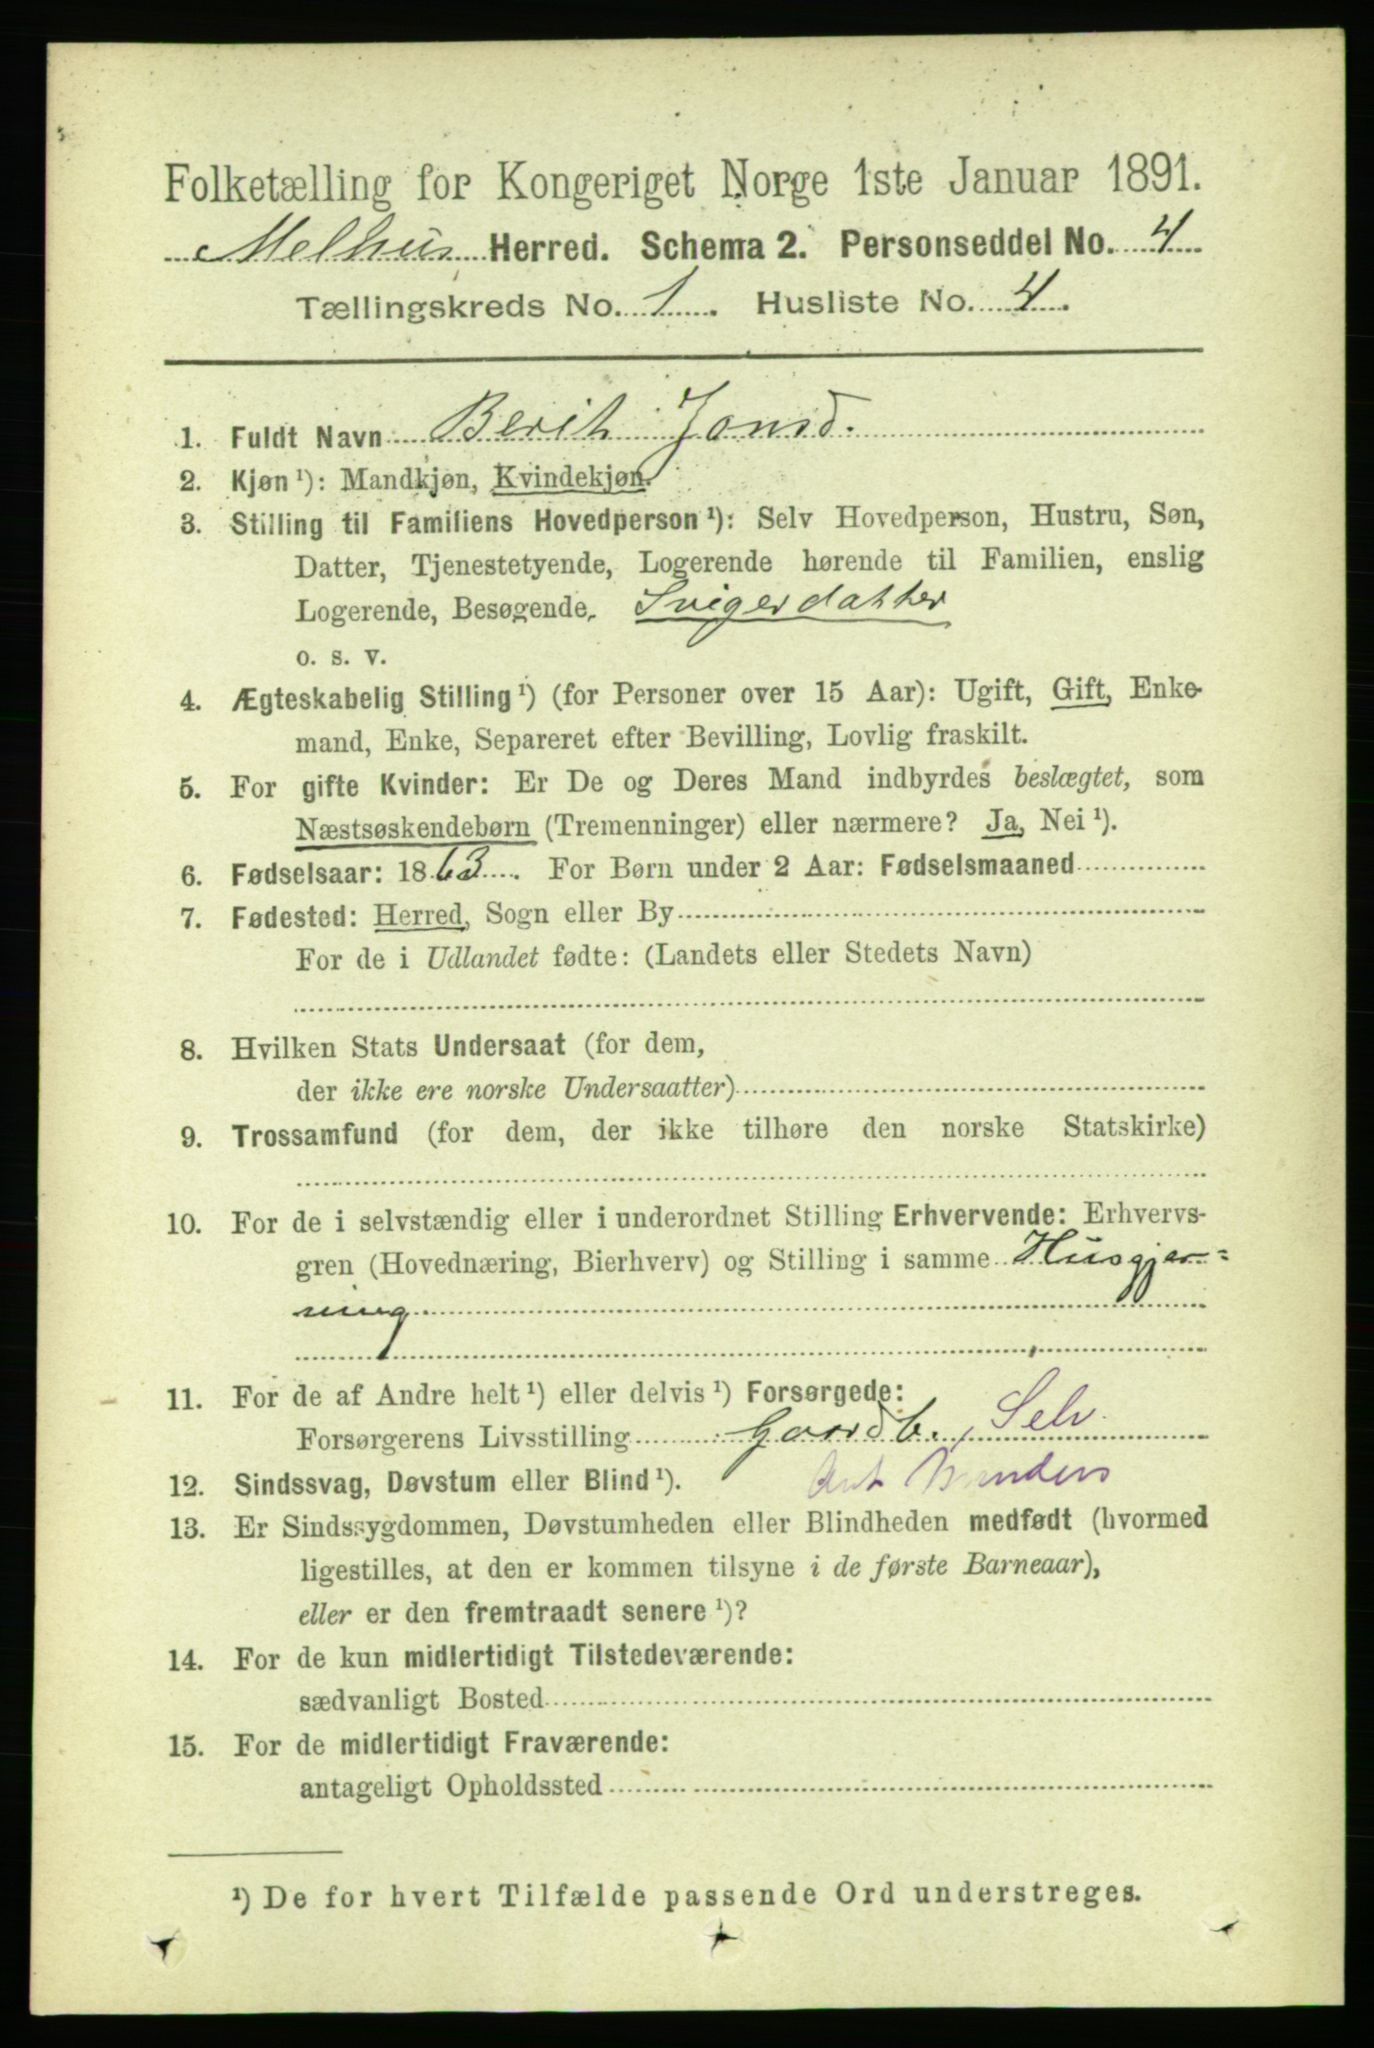 Folketælling for Kongeriget Norge 1ste Januar 1891.
Melhus Herred. Schema 2. Personseddel No. 4
Tællingskreds No. 1. Husliste No. 4.
1. Fuldt Navn Berith Jonsd.
2. Kjøn ¹): Mandkjøn, Kvindekjøn.
3. Stilling til Familiens Hovedperson ¹): Selv Hovedperson, Hustru, Søn,
Datter, Tjenestetyende, Logerende hørende til Familien, enslig
Logerende, Besøgende, Svigerdatter
o. s. v.
4. Ægteskabelig Stilling ¹) (for Personer over 15 Aar): Ugift, Gift, Enke-
mand, Enke, Separeret efter Bevilling, Lovlig fraskilt.
5. For gifte Kvinder: Er De og Deres Mand indbyrdes beslægtet, som
Næstsøskendebørn (Tremenninger) eller nærmere? Ja, Nei ¹).
6. Fødselsaar: 1863. For Børn under 2 Aar: Fødselsmaaned
7. Fødested: Herred, Sogn eller By
For de i Udlandet fødte: (Landets eller Stedets Navn)
8. Hvilken Stats Undersaat (for dem,
der ikke ere norske Undersaatter)
9. Trossamfund (for dem, der ikke tilhøre den norske Statskirke)
10. For de i selvstændig eller i underordnet Stilling Erhvervende: Erhvervs-
gren (Hovednæring, Bierhverv) og Stilling i samme Husgjer=
ning
11. For de af Andre helt ¹) eller delvis ¹) Forsørgede:
Forsørgerens Livsstilling Gaardb., Selv.
12. Sindssvag, Døvstum eller Blind ¹).
13. Er Sindssygdommen, Døvstumheden eller Blindheden medfødt (hvormed
ligestilles, at den er kommen tilsyne i de første Barneaar),
eller er den fremtraadt senere ¹)?
14. For de kun midlertidigt Tilstedeværende:
sædvanligt Bosted
15. For de midlertidigt Fraværende:
antageligt Opholdssted
¹) De for hvert Tilfælde passende Ord understreges.